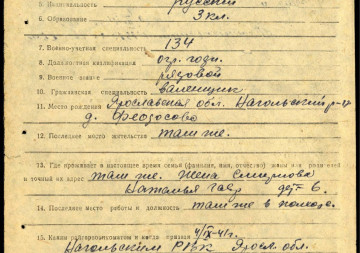 5. Национальность русский
6. Образование 3 кл.
7. Военно-учетная специальность 134
8. Должностная квалификация огр. годн.
9. Военное звание рядовой
10. Гражданская специальность валенщик
11. Место рождения Ярославская обл. Нагольский р-н
д. Федосово
12. Последнее место жительства там же.
13. Где проживает в настоящее время семья (фамилия, имя, отчество) жены или родителей
и точный их адрес там же. Жена Смирнова
Наталья Гавр. дет- 6.
14. Последнее место работы и должность там же в колхозе.
15. Каким райгорвоенкоматом и когда призван 4/IX-41 г.
Нагольским РВК Яросл. обл.